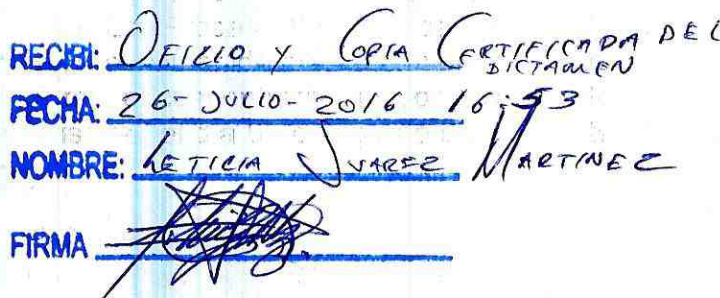 RECIBI: OFICIO Y COPIA CERTIFICADA DEL
DICTAMEN
FECHA: 26-JULIO-2016 16:53
NOMBRE: LETICIA JUAREZ MARTINEZ
FIRMA